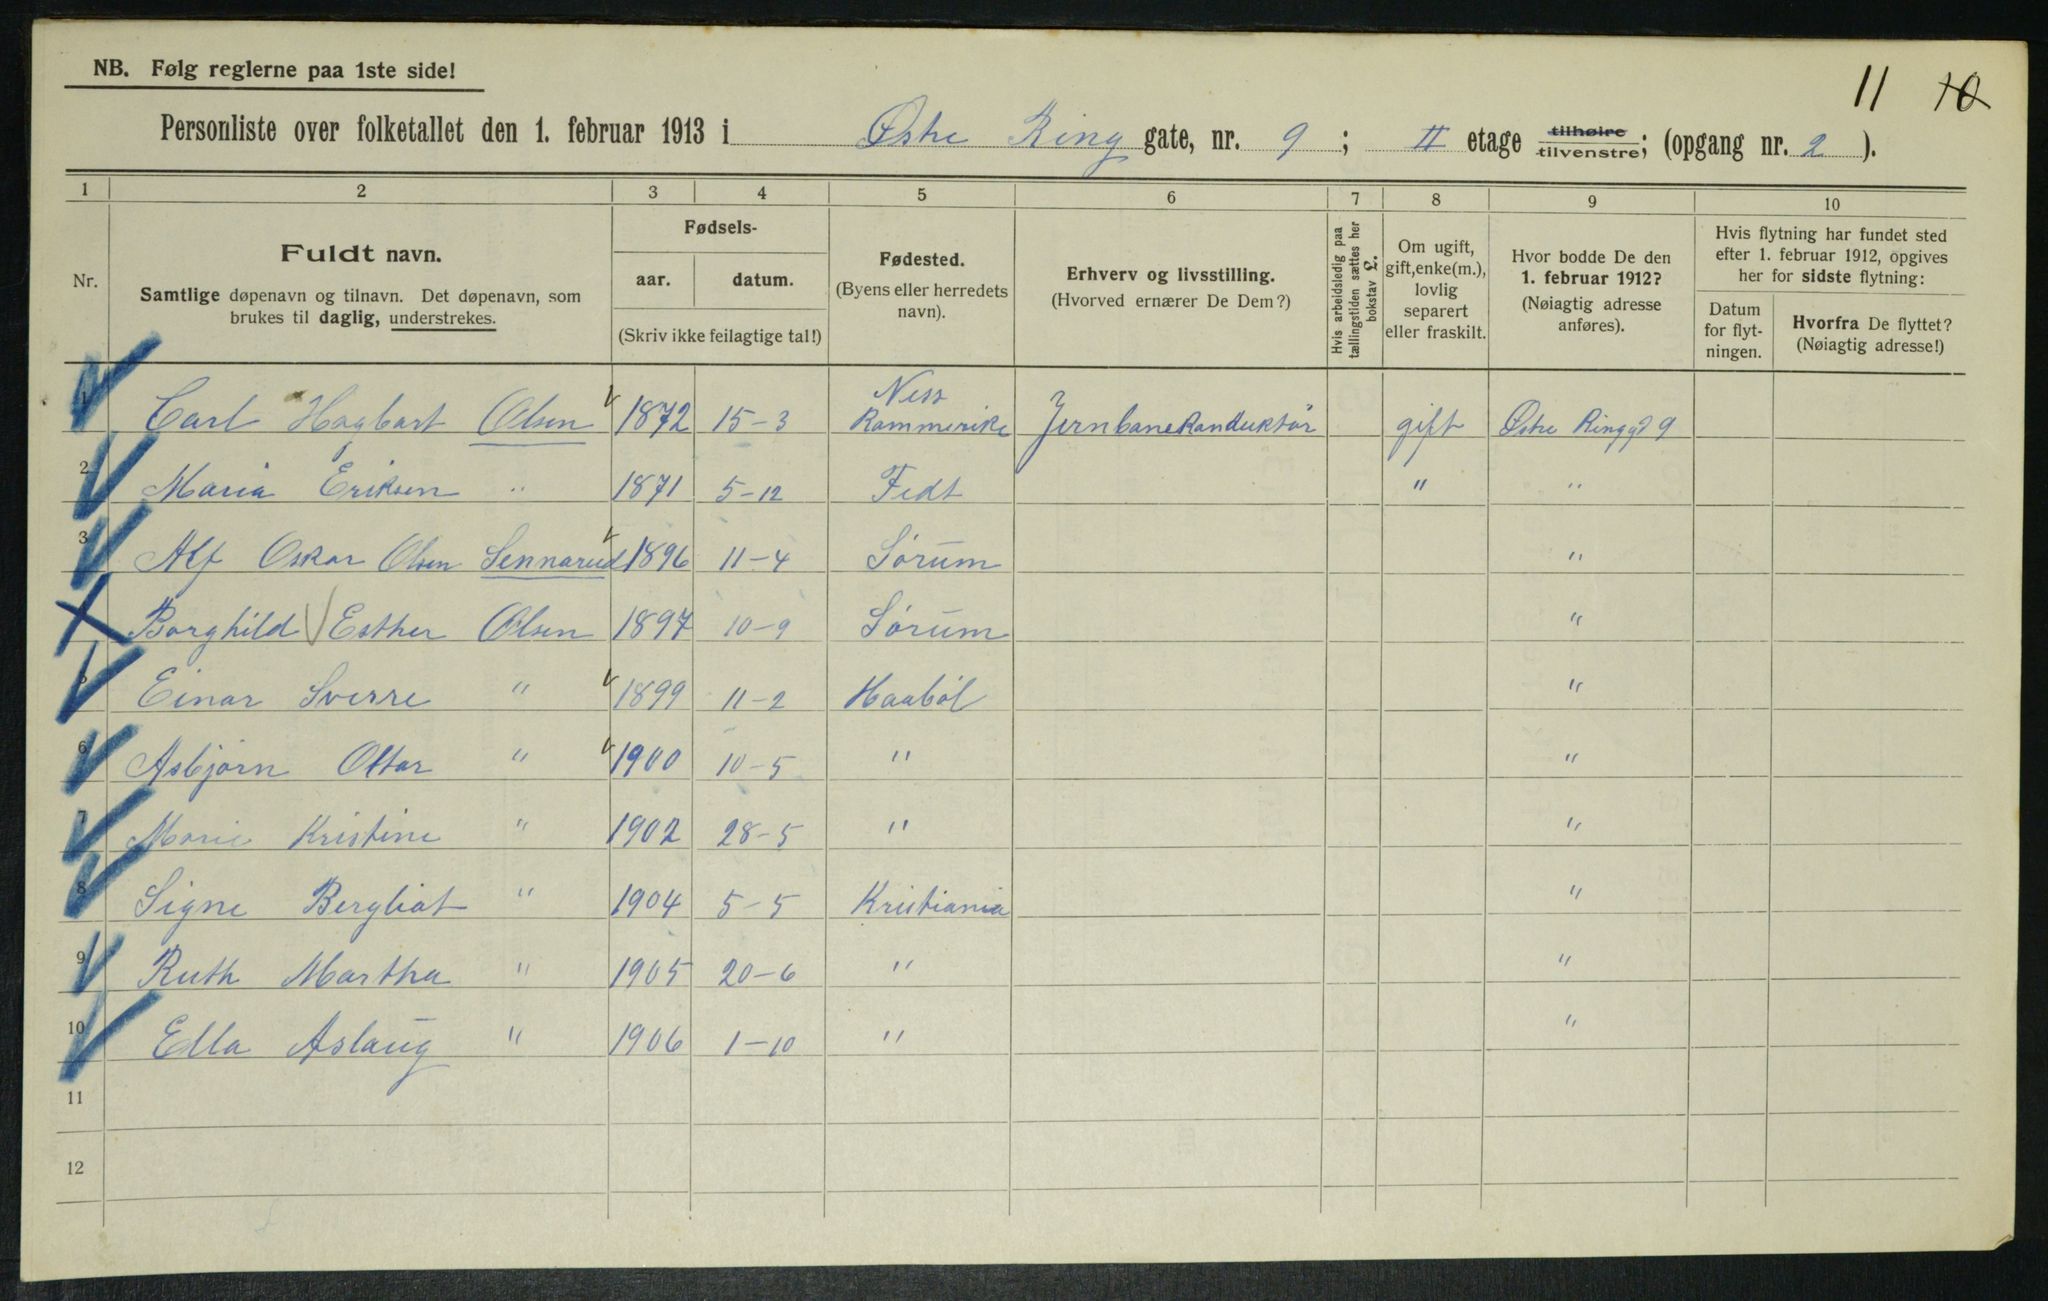 NB. Følg reglerne paa 1ste side!
11 10
Personliste over folketallet den 1. februar 1913 i Østre Ring gate, nr. 9 ; II etage tilhøire tilvenstre; (opgang nr. 2 ).
1 2 3 4 5 6 7 8 9 10
Nr.
Fuldt navn.
Samtlige døpenavn og tilnavn. Det døpenavn, som
brukes til daglig, understrekes.
Fødsels-
aar. datum.
(Skriv ikke feilagtige tal!)
Fødested.
(Byens eller herredets
navn).
Erhverv og livsstilling.
(Hvorved ernærer De Dem?)
Hvis arbeidsledig paa
tællingstiden sættes her
bokstav L.
Om ugift,
gift, enke(m.),
lovlig
separert
eller fraskilt.
Hvor bodde De den
1. februar 1912?
(Nøiagtig adresse
anføres).
Hvis flytning har fundet sted
efter 1. februar 1912, opgives
her for sidste flytning:
Datum
for flyt-
ningen.
Hvorfra De flyttet?
(Nøiagtig adresse!)
1 Carl Hagbart Olsen 1872 15-3 Ness Rommerike Jernbanekonduktör gift Østre Ringgd 9
2 Maria Eriksen " 1871 5-12 Fedt " "
3 Alf Oskar Olsen Sennerud 1896 11-4 Sörum "
Borghild Esther Olsen 1897 10-9 Sörum "
5 Einar Sverre " 1899 11-2 Haaböl "
6 Asbjörn Ottar " 1900 10-5 " "
7 Marie Kristine " 1902 28-5 " "
8 Signe Bergliot " 1904 5-5 Kristiania "
9 Ruth Martha " 1905 20-6 " "
10 Ella Aslaug " 1906 1-10 " "
11
12